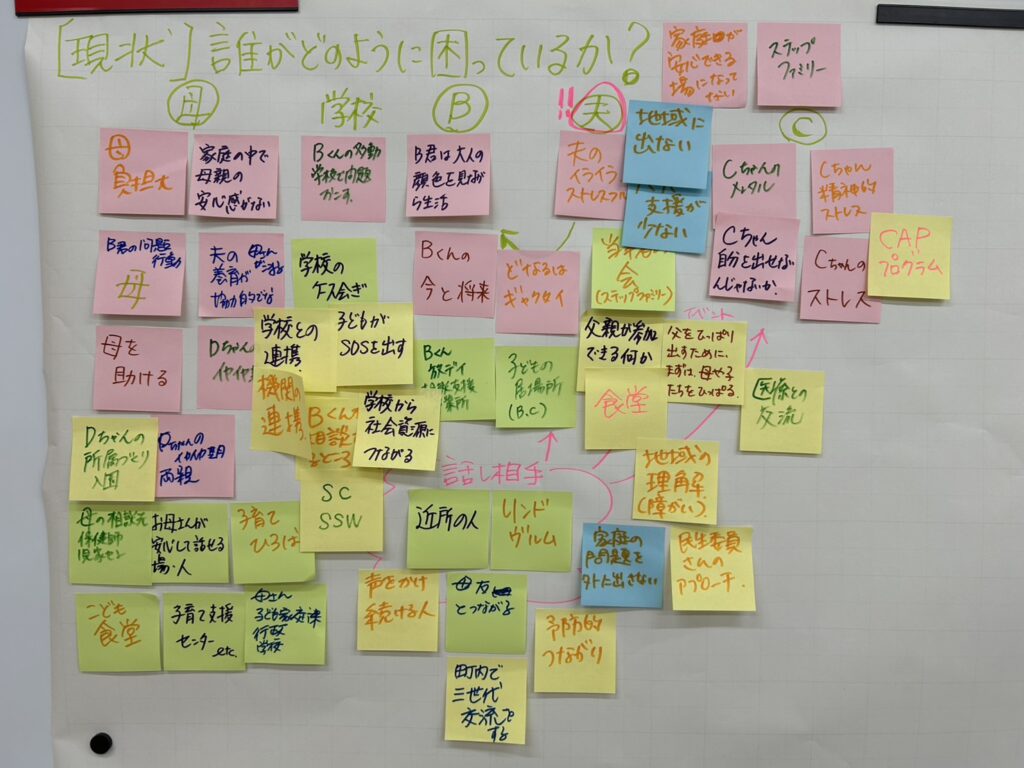 [現状] 誰がどのように困っているか?
家庭が
安心できる
場になって
ない
ステップ
ファミリー
母
学校
B
!!
実
C
母
負担大
家庭の中で
母親の
安心感がない
Bくんの多動
学校で問題
B君は大人の
顔色を見なが
ら生活
夫の
イライラ
ストレスフル
地域に
出ない
支援が
少ない
Cちゃんの
メンタル
Cちゃん
精神的
ストレス
B君の問題
行動
母
夫の
養育が
協力的でな
学校の
ケース会ぎ
Bくんの
今と将来
どなるは
ギャクタイ
会
(ステップファミリー)
Cちゃん
自分を出せない
んじゃないか。
Cちゃんの
ストレス
CAP
プログラム
母を
助ける
Dちゃんの
イヤイヤ
学校との
連携
子どもが
SOSを出す
Bくん
放デイ
子どもの
居場所
(B.C)
父親が参加
できる何か
イベント
父をひっぱり
出すために、
まずは、母や子
たちをひっぱる.
機関の
連携
Bくんの
相談
ところ
学校から
社会資源に
つながる
食堂
医療との
交流
Dちゃんの
所属づくり
入園
Dちゃんの
イヤイヤ期
両親
SC
SSW
話し相手
地域の
理解
(障がい)
母の相談先
保健師
お母さんが
安心して話せる
場・人
子育て
ひろば
近所の人
リンド
ヴルム
家庭の
問題を
外に出さない
民生委員
さんの
アプローチ.
こども
食堂
子育て支援
センター
etc.
母さん
子ども家庭課
行政
学校
声をかけ
続ける人
母友
とつながる
予防的
つながり
町内で
三世代
交流を
する